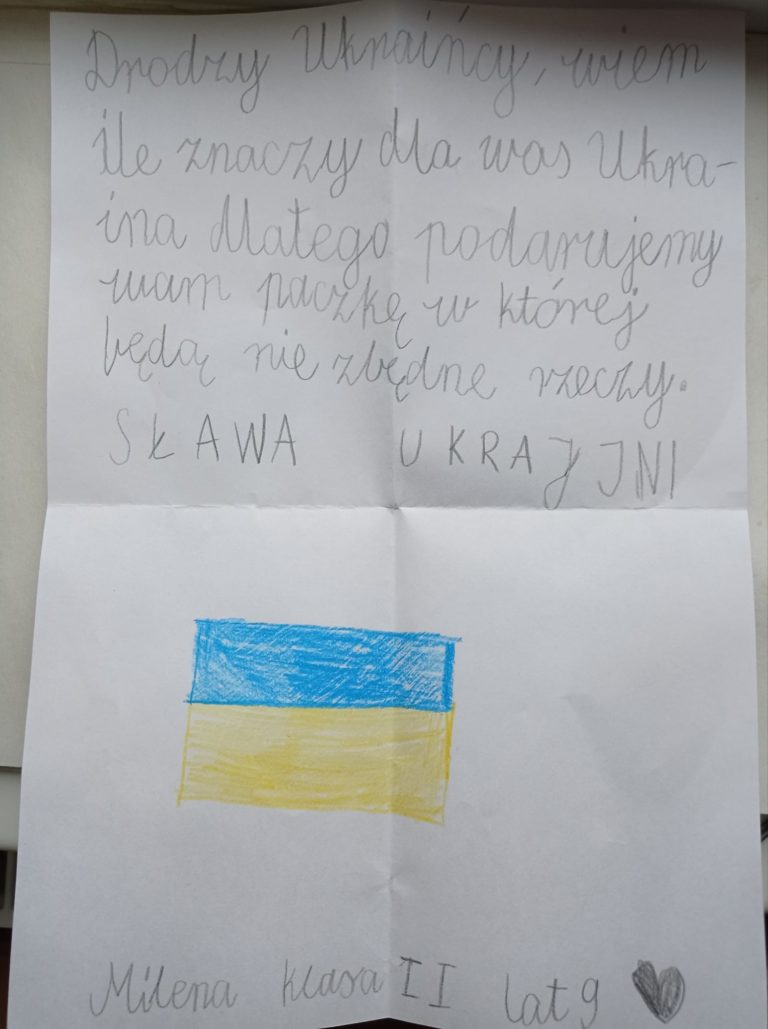 Drodzy Ukraińcy, wiem
ile znaczy dla was Ukra-
ina dlatego podarujemy
wam paczkę w której
będą nie zbędne rzeczy.
SŁAWA UKRAJJNI
Milena klasa II lat 9